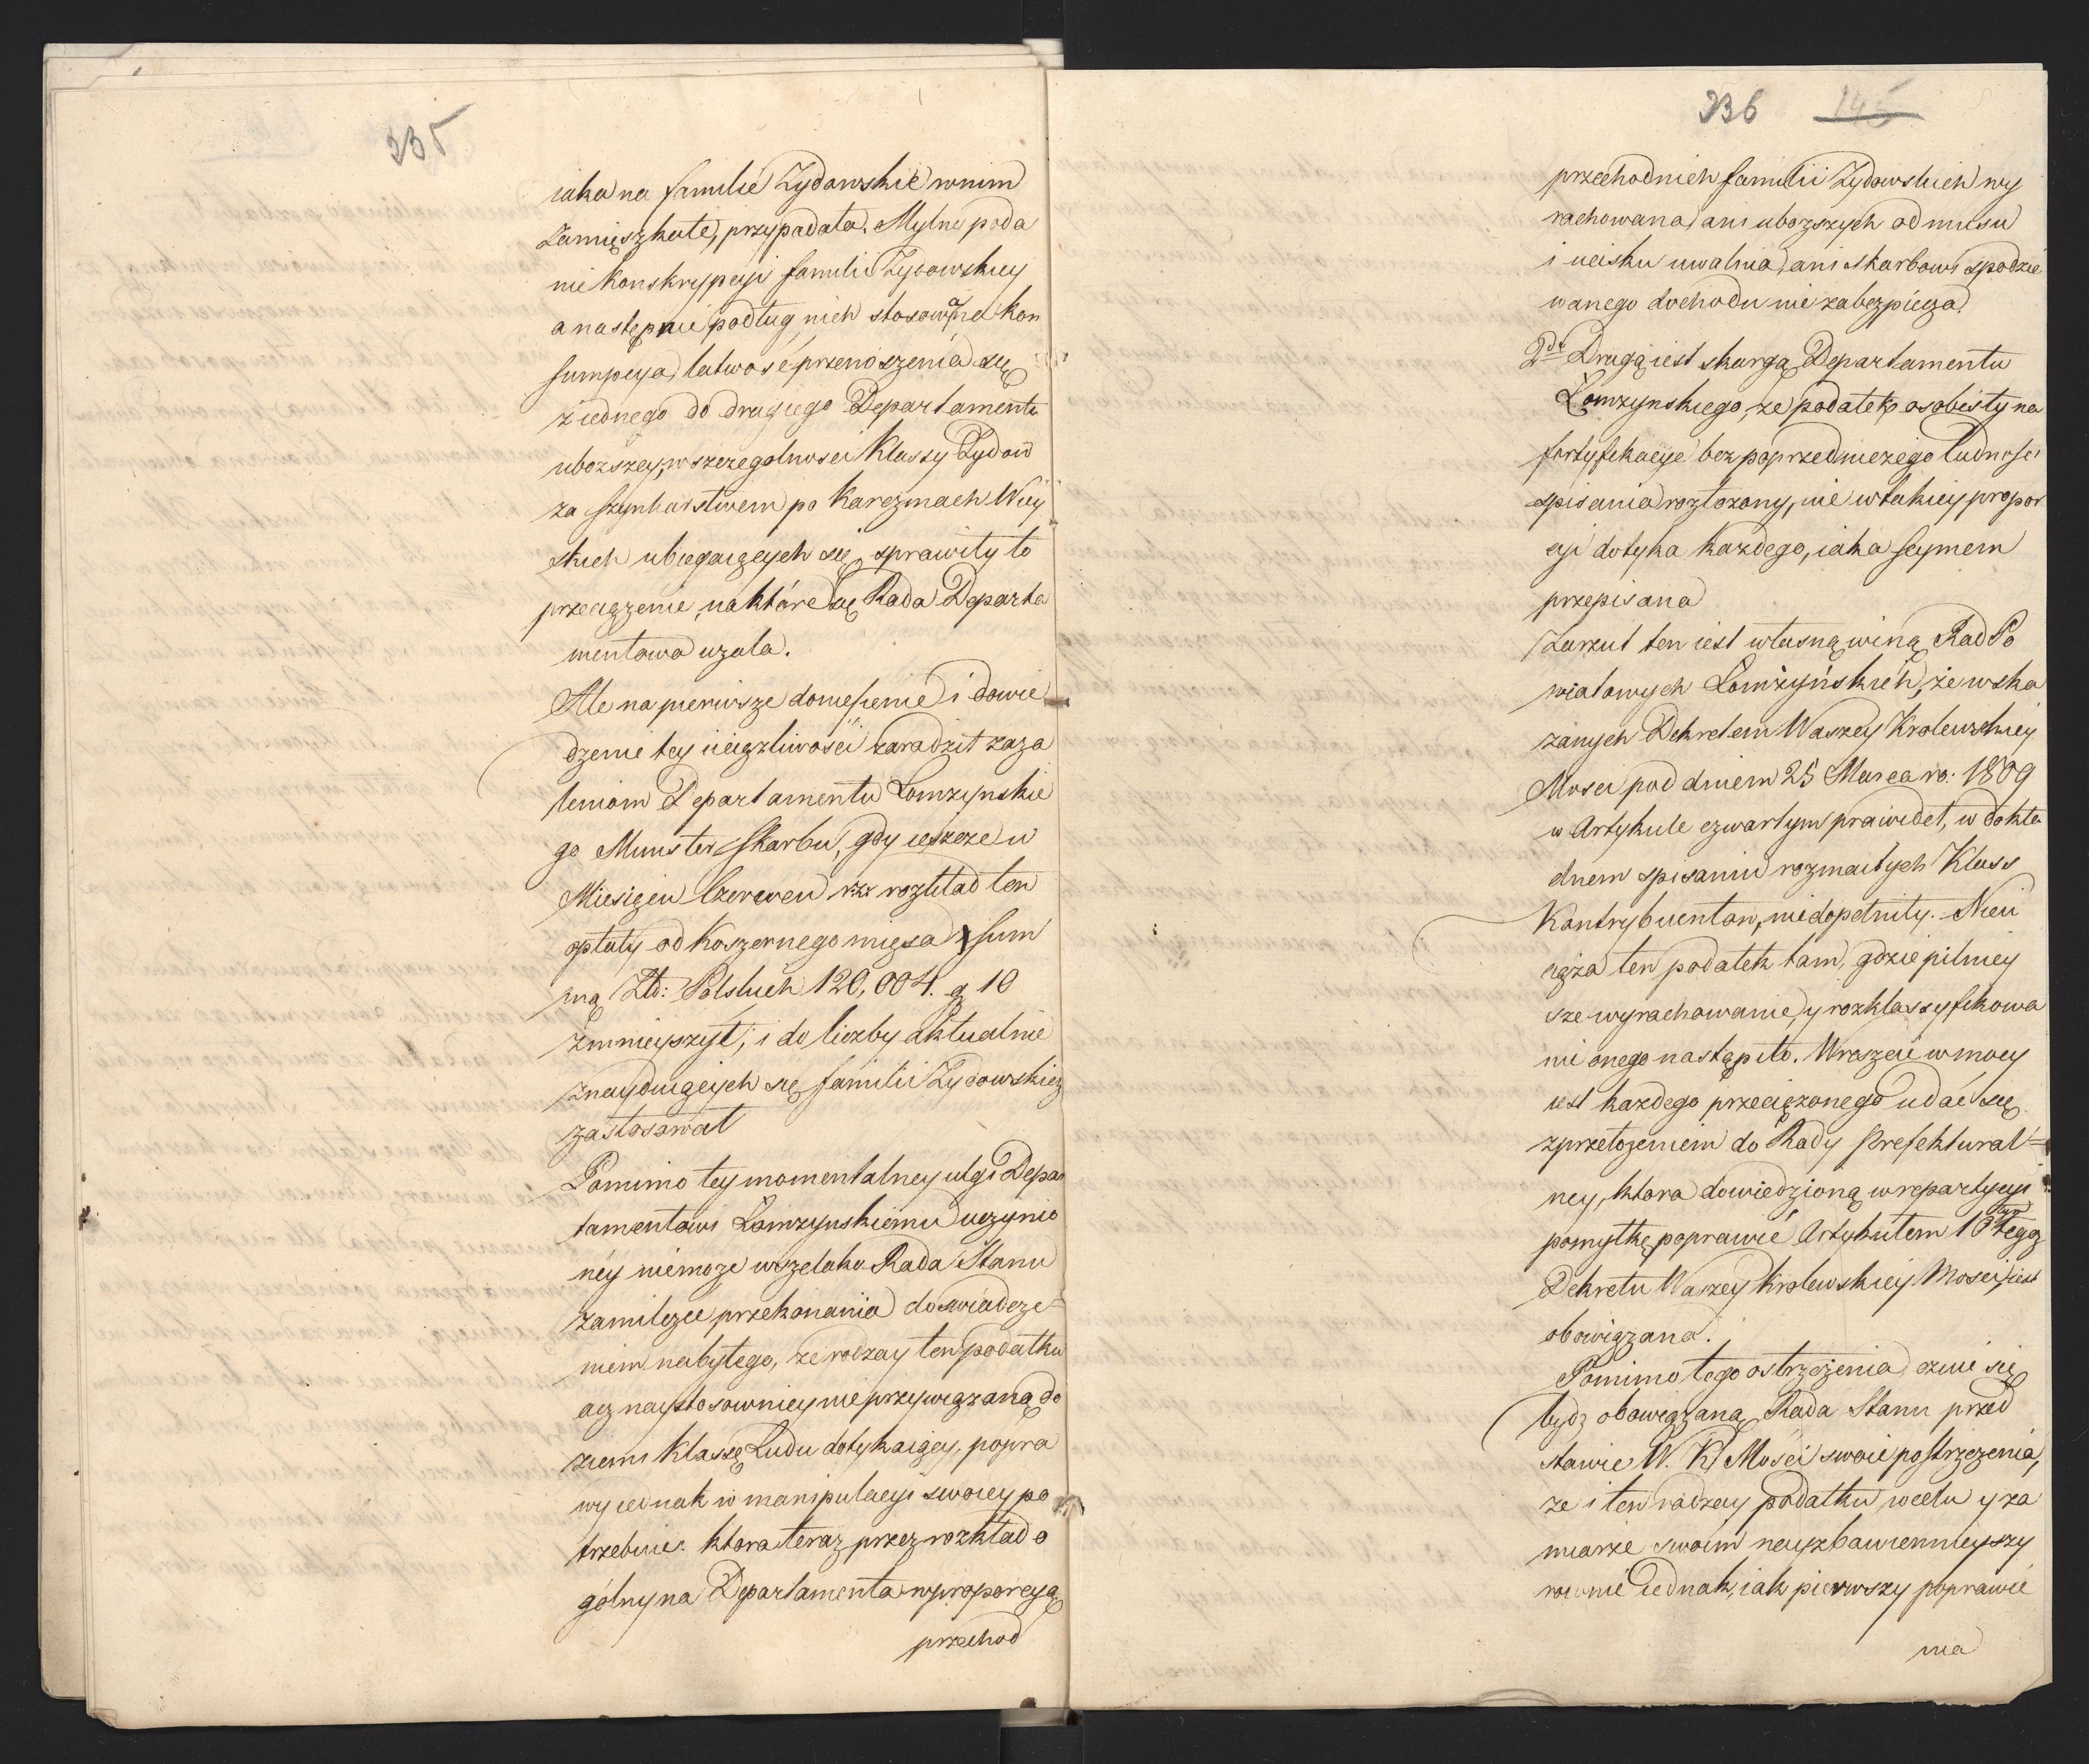 235
iaka na familie Zydowskie w nim
zamięszkałe, przypadała. Mylne poda
nie konskrypcyi familii Zydowskiey
a następnie podług nich stosowana kon
sumpcya, łatwość przenoszenia się
z iednego do drugiego Departamentu
uboższey, w szczegolnosci Klassy Zydow
za szynkarstwem po karczmach Wiey
skich ubiegaiących się, sprawiły to
przeciążenie, na które się Rada Departa
mentowa uzala.
Ale na pierwsze doniesienie i dowie
dzenie tey uciązliwości zaradził zaza
leniom Departamentu Łomzynskie
go Minister Skarbu, gdy ieszcze w
Miesiącu Czerwcu rozkład ten
opłaty od Koszernego mięsa sum
mą Złł: Polskich 120,004. g 10
zmnieyszył, i do liczby aktualnie
znayduiących się familii Zydowskiey
zastosował
Pomimo tey momentalney ulgi Depar
tamentowi Łomzynskiemu uczynio
néy niemoze wszelako Rada Stanu
zamilczec przekonania doswiadcze=
niem nabytego, ze rodzay ten podatku
acz naystosowniey nieprzywiązaną do
ziemi klassę Ludu dotykaiący, popra
wy iednak w manipulacyi swoiey po
trzebuie. ktora teraz przez rozkład o
gólny na Departamenta w proporcyą
przechod
236 145
przechodnich familii Zydowskich wy
rachowana, ani ubozszych od musu
i ucisku uwalnia, ani skarbowi spodzie
wanego dochodu nie zabezpiecza.
2do Drugą iest skargą Departamentu
Łomzynskiego, ze podatek osobisty na
fortyfikacye bez poprzedniczego ludnosci
spisania rozłozony, nie w takiey propor
cyi dotyka kazdego, iaka seymem
przepisana
Zarzut ten iest własną winą Rad Po
wiatowych Łomżyńskich, że wska
zanych Dekretem Waszey Krolewskiey
Mosci pod dniem 25 Marca ro: 1809
w Artykule czwartym prawideł, w dokła
dnem spisaniu rozmaitych Klass
Kontrybuentow, niedopełniły. Nieu
ciąża ten podatek tam, gdzie pilniey
sze wyrachowanie, y rozklassyfikowa
nie onego nastąpiło. Wreszcie w mocy
iest kazdego przeciązonego udać się
z przełozeniem do Rady Prefektural=
ney, ktora dowiedzioną w repartycyi
pomyłkę poprawić Artykułem 10tym tegoz
Dekretu Waszey Krolewskiey Mosci, iest
obowiązana.
Pomimo tego ostrzeżenia czuie się
bydz obowiązaną Rada Stanu przed
stawic W. K. Mości swoie postrzezenia,
ze i ten rodzay podatku, w celu y za
miarze swoim nayzbawiennieyszy
rownie iednak, iak pierwszy poprawie
ma